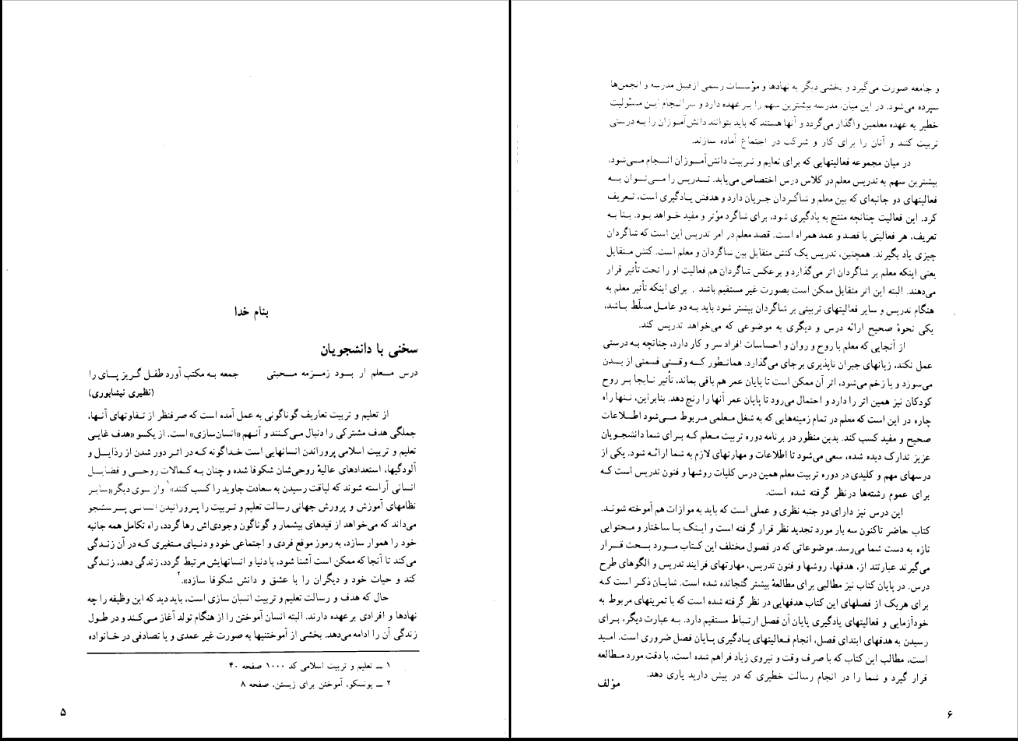 بنام خدا
سخنی با دانشجویان
درس معلم ار بود زمزمه محبتی جمعه به مکتب آورد طفل گریز پای را
(نظیری نیشابوری)
از تعلیم و تربیت تعاریف گوناگونی به عمل آمده است که صرفنظر از تفاوتهای آنها،
جملگی هدف مشترکی را دنبال می‌کنند و آنهم «انسان‌سازی» است. از یکسو «هدف غایی
تعلیم و تربیت اسلامی پروراندن انسانهایی است خداگونه که در اثر دور شدن از رذایل و
آلودگیها، استعدادهای عالیهٔ روحی‌شان شکوفا شده و چنان به کمالات روحی و فضایل
انسانی آراسته شوند که لیاقت رسیدن به سعادت جاوید را کسب کنند»۱ و از سوی دیگر «سایر
نظامهای آموزش و پرورش جهانی رسالت تعلیم و تربیت را پرورانیدن انسانی پرسشجو
می‌داند که می‌خواهد از قیدهای بیشمار و گوناگون وجودی‌اش رها گردد، راه تکامل همه جانبه
خود را هموار سازد، به رموز موقع فردی و اجتماعی خود و دنیای متغیری که در آن زندگی
می‌کند تا آنجا که ممکن است آشنا شود، با دنیا و انسانهایش مرتبط گردد، زندگی دهد، زندگی
کند و حیات خود و دیگران را با عشق و دانش شکوفا سازد».۲
حال که هدف و رسالت تعلیم و تربیت انسان سازی است، باید دید که این وظیفه را چه
نهادها و افرادی برعهده دارند. البته انسان آموختن را از هنگام تولد آغاز می‌کند و در طول
زندگی آن را ادامه می‌دهد. بخشی از آموختنیها به صورت غیر عمدی و یا تصادفی در خانواده
۱ ــ تعلیم و تربیت اسلامی کد ۱۰۰۰ صفحه ۴۰
۲ ــ یونسکو، آموختن برای زیستن، صفحه ۸
۵
و جامعه صورت می‌گیرد و بخشی دیگر به نهادها و مؤسسات رسمی ازقبیل مدرسه و انجمن‌ها
سپرده می‌شود. در این میان، مدرسه بیشترین سهم را بر عهده دارد و سرانجام این مسئولیت
خطیر به عهده معلمین واگذار می‌گردد و آنها هستند که باید بتوانند دانش‌آموزان را به درستی
تربیت کنند و آنان را برای کار و شرکت در اجتماع آماده سازند.
در میان مجموعه فعالیتهایی که برای تعلیم و تربیت دانش‌آموزان انجام می‌شود،
بیشترین سهم به تدریس معلم در کلاس درس اختصاص می‌یابد. تدریس را می‌توان به
فعالیتهای دو جانبه‌ای که بین معلم و شاگردان جریان دارد و هدفش یادگیری است، تعریف
کرد. این فعالیت چنانچه منتج به یادگیری شود، برای شاگرد مؤثر و مفید خواهد بود. بنا به
تعریف، هر فعالیتی با قصد و عمد همراه است. قصد معلم در امر تدریس این است که شاگردان
چیزی یاد بگیرند. همچنین، تدریس یک کنش متقابل بین شاگردان و معلم است. کنش متقابل
یعنی اینکه معلم بر شاگردان اثر می‌گذارد و برعکس شاگردان هم فعالیت او را تحت تأثیر قرار
می‌دهند. البته این اثر متقابل ممکن است بصورت غیر مستقیم باشد . برای اینکه تأثیر معلم به
هنگام تدریس و سایر فعالیتهای تربیتی بر شاگردان بیشتر شود باید به دو عامل مسلّط باشد،
یکی نحوهٔ صحیح ارائه درس و دیگری به موضوعی که می‌خواهد تدریس کند.
از آنجایی که معلم با روح و روان و احساسات افراد سر و کار دارد، چنانچه به درستی
عمل نکند، زیانهای جبران ناپذیری برجای می‌گذارد. همانطور که وقتی قسمتی از بدن
می‌سوزد و یا زخم می‌شود، اثر آن ممکن است تا پایان عمر هم باقی بماند، تأثیر نابجا بر روح
کودکان نیز همین اثر را دارد و احتمال می‌رود تا پایان عمر آنها را رنج دهد. بنابراین، تنها راه
چاره در این است که معلم در تمام زمینه‌هایی که به شغل معلمی مربوط می‌شود اطلاعات
صحیح و مفید کسب کند. بدین منظور در برنامه دوره تربیت معلم که برای شما دانشجویان
عزیز تدارک دیده شده، سعی می‌شود تا اطلاعات و مهارتهای لازم به شما ارائه شود. یکی از
درسهای مهم و کلیدی در دوره تربیت معلم همین درس کلیات روشها و فنون تدریس است که
برای عموم رشته‌ها درنظر گرفته شده است.
این درس نیز دارای دو جنبه نظری و عملی است که باید به موازات هم آموخته شوند.
کتاب حاضر تاکنون سه بار مورد تجدید نظر قرار گرفته است و اینک با ساختار و محتوایی
تازه به دست شما می‌رسد. موضوعاتی که در فصول مختلف این کتاب مورد بحث قرار
می‌گیرند عبارتند از، هدفها، روشها و فنون تدریس، مهارتهای فرایند تدریس و الگوهای طرح
درس. در پایان کتاب نیز مطالبی برای مطالعهٔ بیشتر گنجانده شده است. شایان ذکر است که
برای هریک از فصلهای این کتاب هدفهایی در نظر گرفته شده است که با تمرینهای مربوط به
خودآزمایی و فعالیتهای یادگیری پایان آن فصل ارتباط مستقیم دارد. به عبارت دیگر، برای
رسیدن به هدفهای ابتدای فصل، انجام فعالیتهای یادگیری پایان فصل ضروری است. امید
است، مطالب این کتاب که با صرف وقت و نیروی زیاد فراهم شده است، با دقت مورد مطالعه
قرار گیرد و شما را در انجام رسالت خطیری که در پیش دارید یاری دهد.
مؤلف
۶